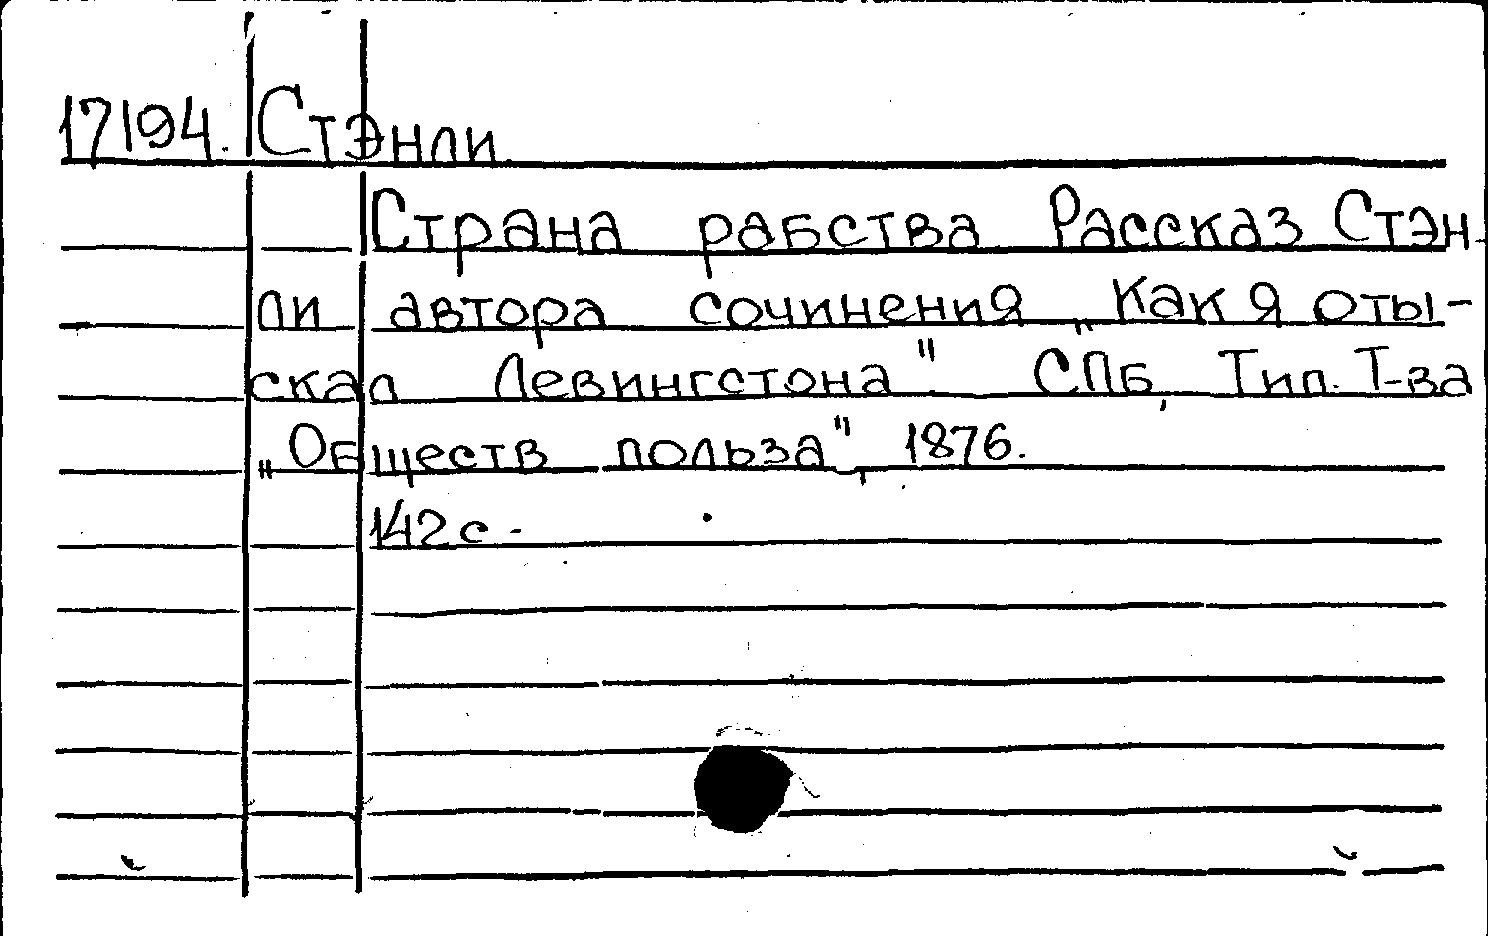 17194. Стэнли
Страна рабства Рассказ Стэн-
ли автора сочинения „Как я оты-
скал Левингстона" СПб, Тип. Т-ва
„Обществ польза", 1876.
142 с.